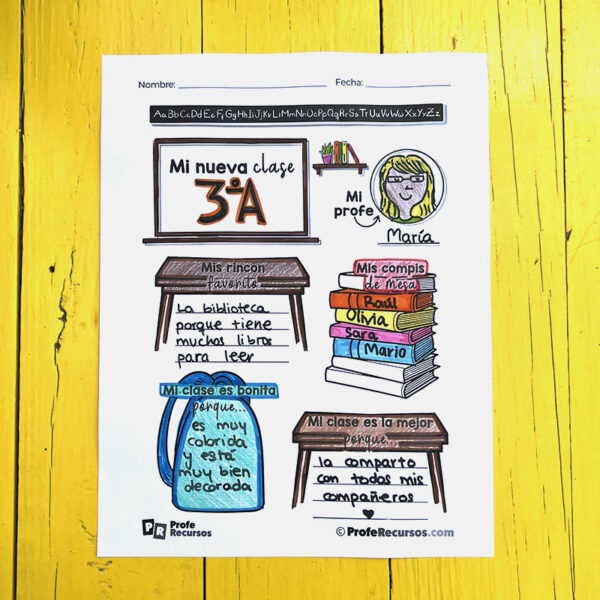 Nombre: Fecha:
AaBbCcDdEeFfGgHhIiJjKkLlMmNnOoPpQqRrSsTtUuVvWwXxYyZz
Mi nueva clase
3ºA
Mi
profe
María
Mis rincón
favorito
La biblioteca
porque tiene
muchos libros
para leer
Mis compis
de mesa
Raúl
Olivia
Sara
Mario
Mi clase es bonita
porque...
es muy
colorida
y está
muy bien
decorada
Mi clase es la mejor
porque...
la comparto
con todos mis
compañeros
PR Profe
Recursos
© ProfeRecursos.com